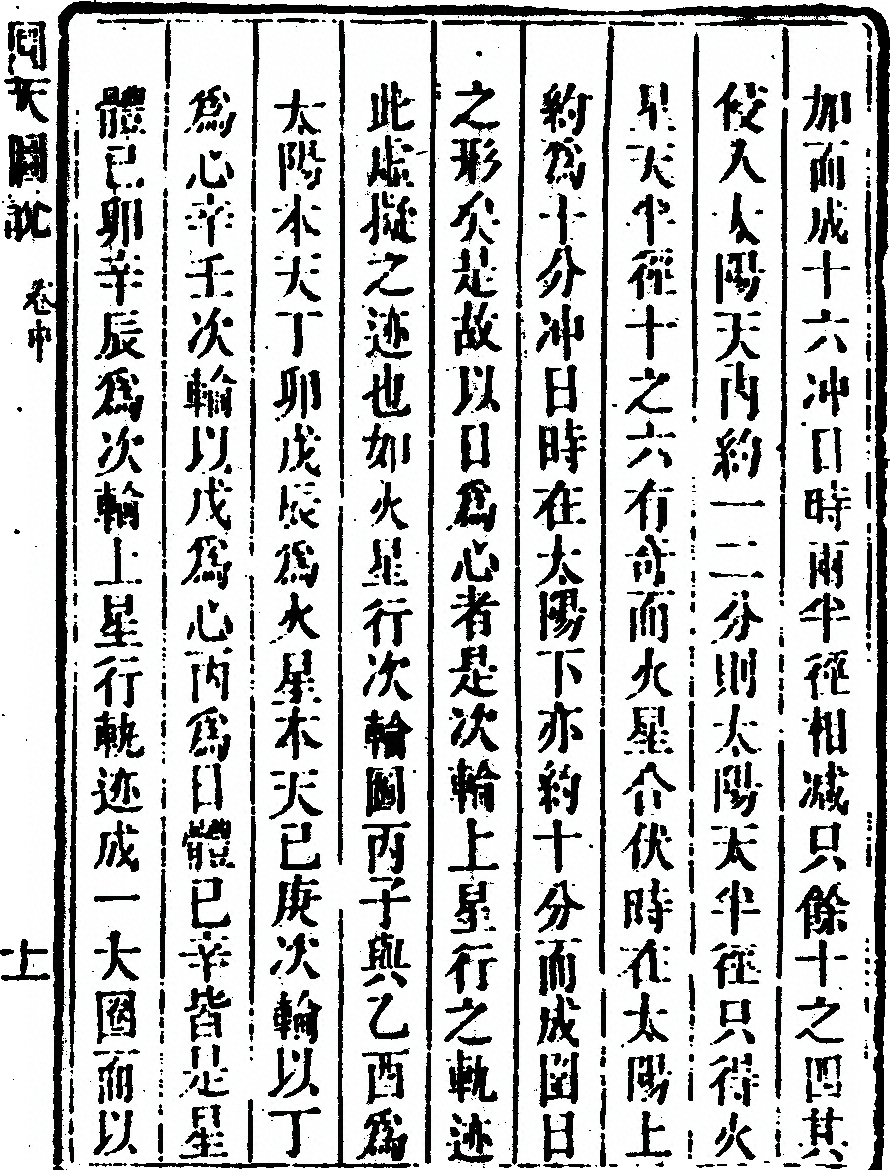 加而成十六冲日時兩半徑相減只餘十之四其
侵入太陽天內約一二分則太陽天半徑只得火
星天半徑十之六有奇而火星合伏時在太陽上
約爲十分冲日時在太陽下亦約十分而成圍日
之形矣是故以日爲心者是次輪上星行之軌迹
此虛擬之迹也如火星行次輪圖丙子與乙酉爲
太陽本天丁卯戊辰爲火星本天已庚次輪以丁
爲心辛壬次輪以戊爲心丙爲日體已辛皆是星
體已卯辛辰爲次輪上星行軌迹成一大圈而以
圜天圖說
卷中